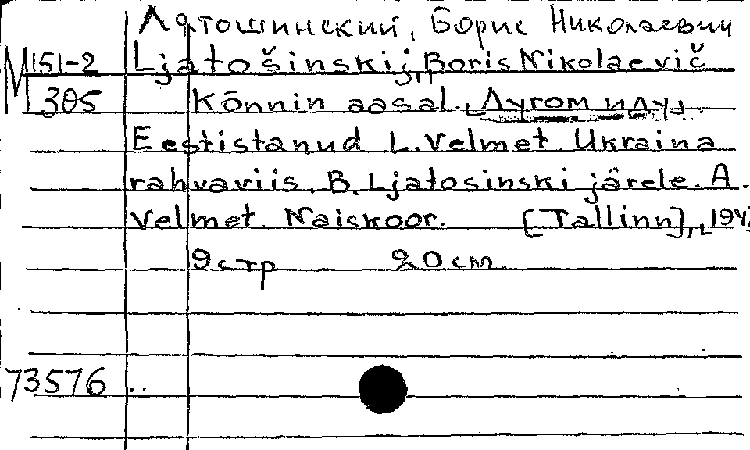 Лятошинский, Борис Николаевич
M 151-2 Ljatošinskij, Boris Nikolaevič
305 Kõnnin aasal. Лугом иду.
Eestistanud L. Velmet. Ukraina
rahvaviis. B. Ljatosinski järele. A.
Velmet. Naiskoor. [Tallinn], 194
9 стр 20 cm
73576